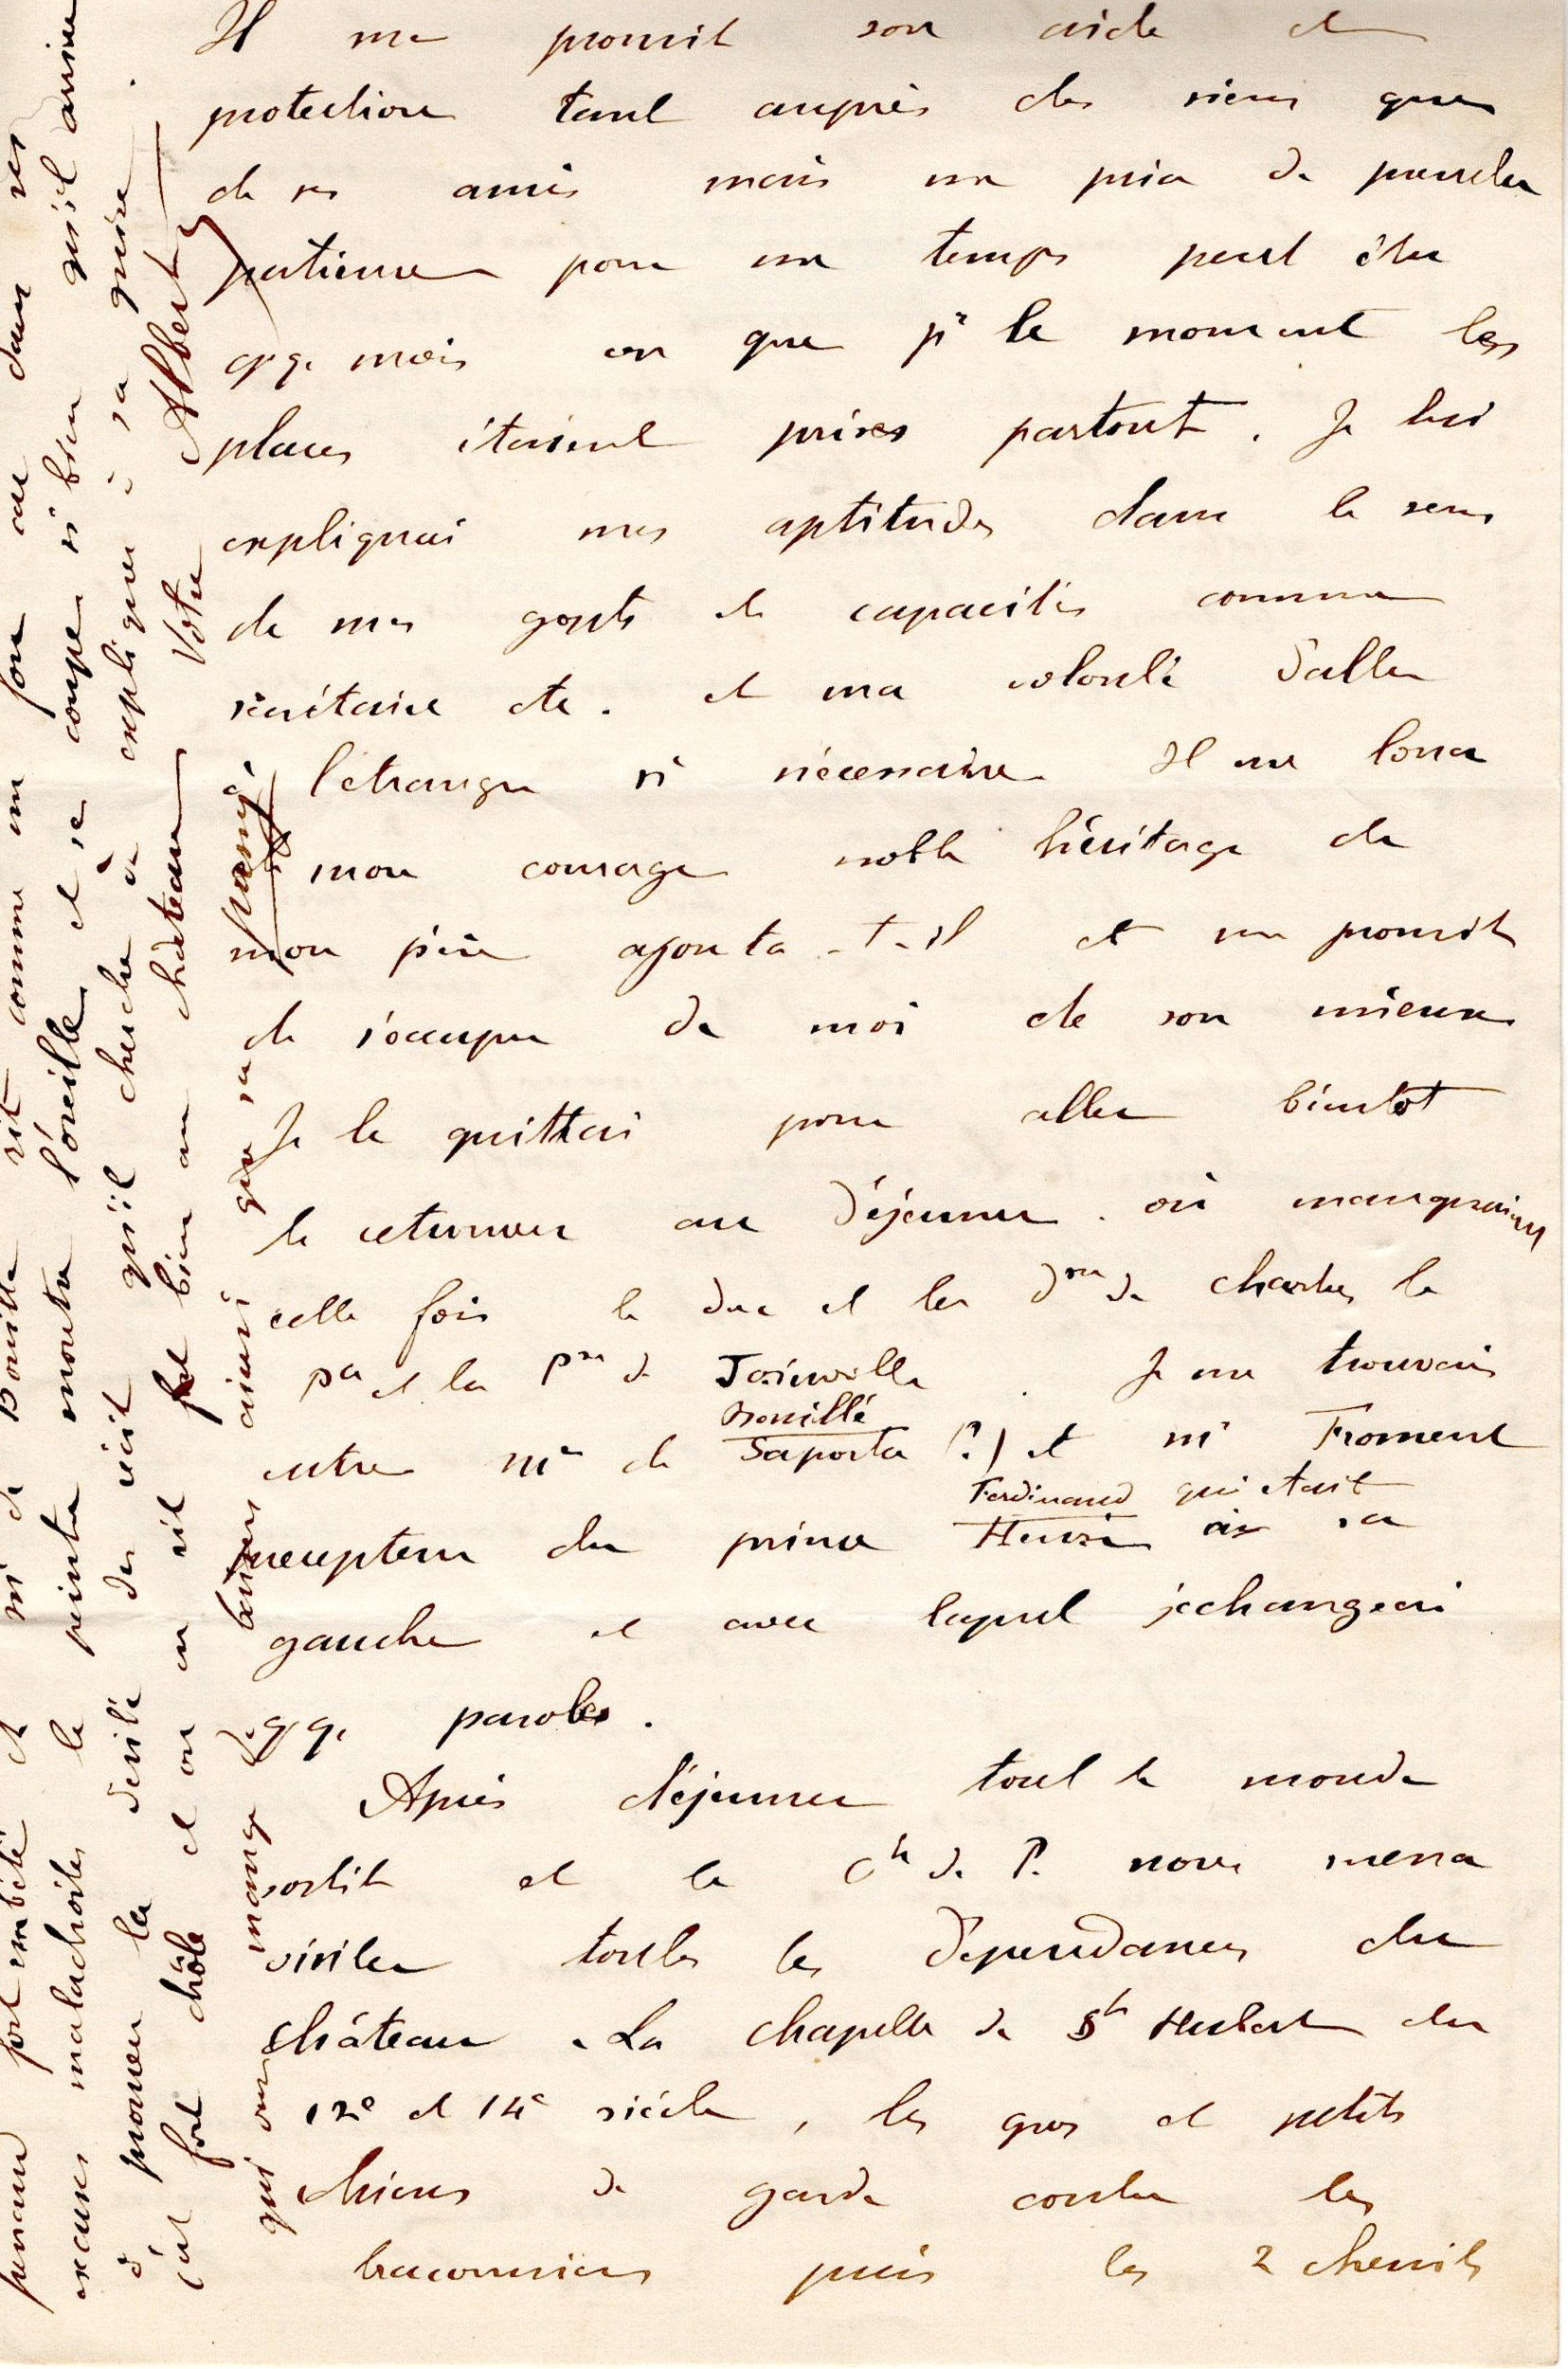 Il me promit son aide et
protection tant auprès des siens que
de ses amis mais me pria de prendre
patience pour un temps peut être
qq. mois vu que pr le moment les
places étaient prises partout. Je lui
expliquai mes aptitudes dans le sens
de mes gouts et capacités comme
secrétaire etc. et ma volonté d'aller
à l'etranger si nécessaire Il me loua
mon courage noble héritage de
mon père ajouta-t-il et me promit
de s'occuper de moi de son mieux
Je le quittai pour aller bientot
le retrouver au déjeuner. où manquaient
cette fois le duc et la dsse de Chartres le
Pce et la Psse de Joinville. Je me trouvais
entre Mr de Saporta (?) et Mr Froment
Bouillé
précepteur du prince Henri à sa
Ferdinand qui etait
gauche et avec lequel j'echangeai
qq. paroles.
Après déjeuner tout le monde
sortit et le Cte de P. nous mena
visiter toutes les dépendances du
château. La chapelle de St Hubert du
12e et 14e siécle, les gros et petits
chiens de garde contre les
braconniers puis les 2 chenils
fort embêté et Mr de Bouillé rit comme un fou car dans ses
excuses maladroites le peintre montre l'oreille et se coupe si bien qu'il arrive
à prouver la vérité des récits qu'il cherche à expliquer à sa guise.
C'est fort drôle et on en rit fort bien au château
Votre Albert
qui ont mangé
ainsi que sa